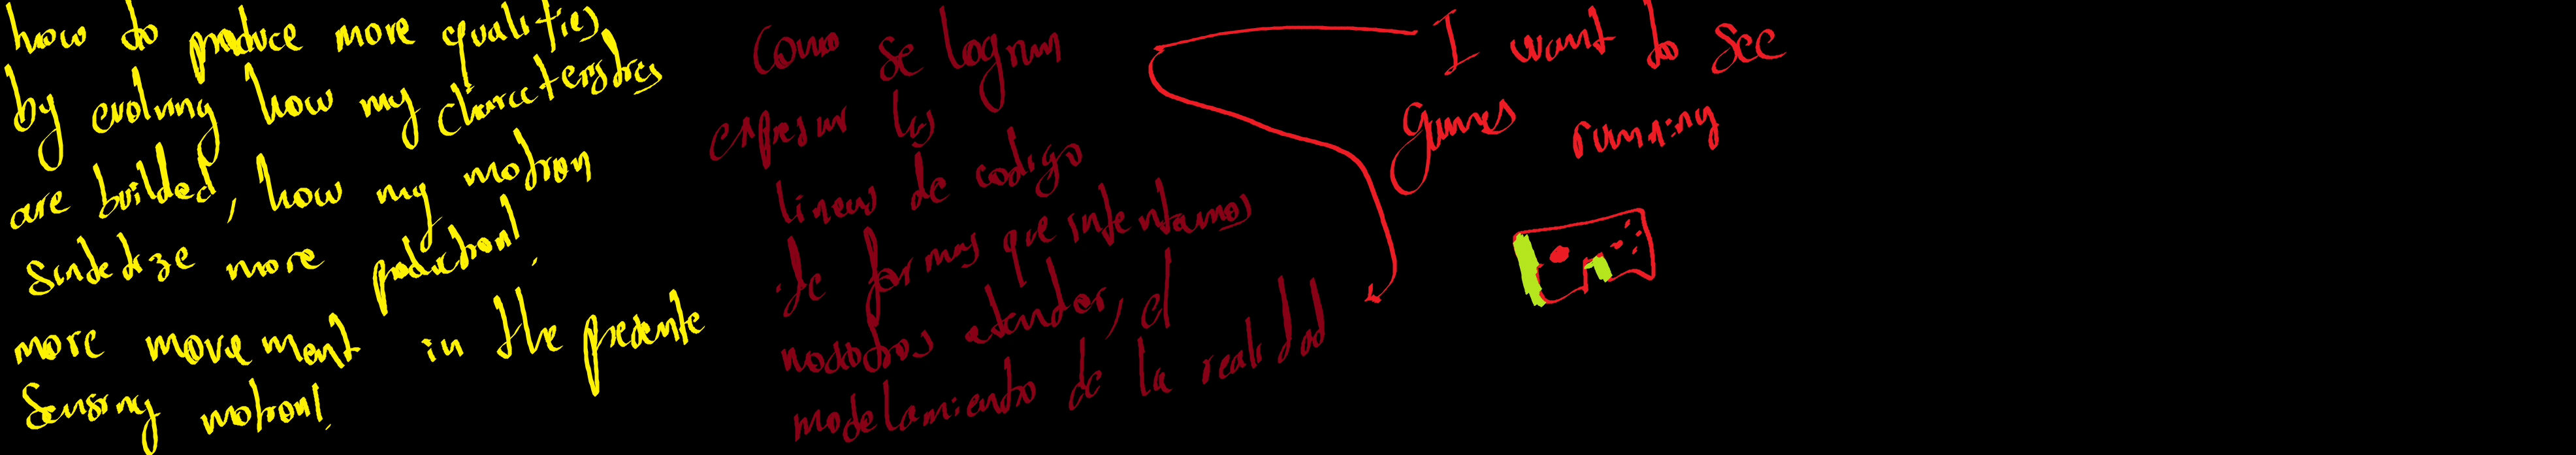 how to produce more qualities,
by evolving how my characteristics
are builded, how my motion
sintetize more production!
more movement in the presente
Sensing motion!
Como se logran
expresar las
lineas de codigo
de formas que intentamos
nosotros entender, el
modelamiento de la realidad
I want to see
games running